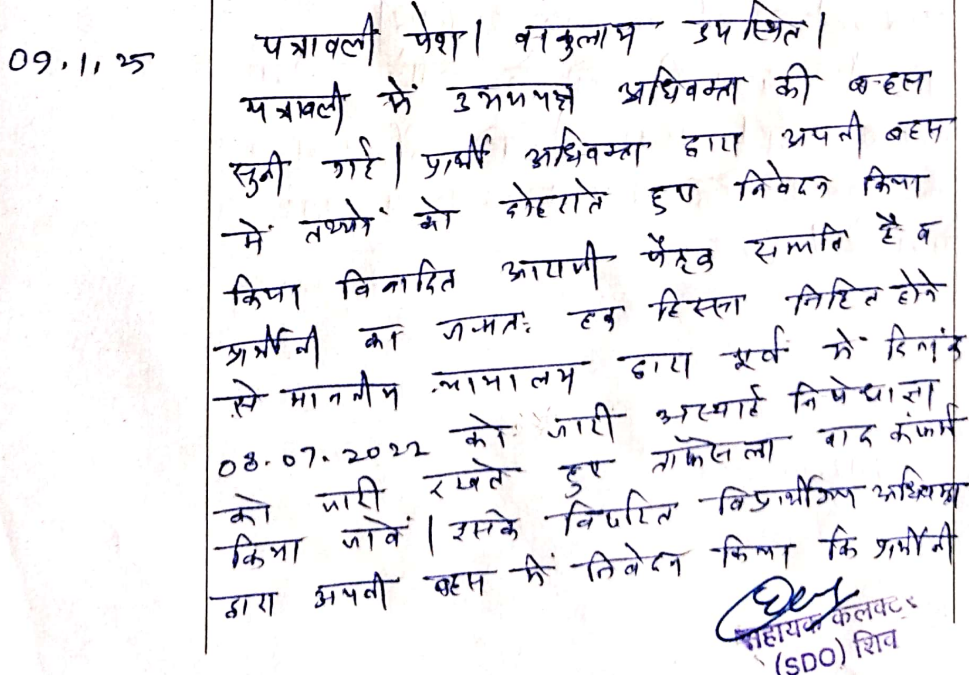 09.1.25
पत्रावली पेश। वकुलाय उपस्थित।
पत्रावली में उभयपक्ष अधिवक्ता की बहस
सुनी गई। प्रार्थी अधिवक्ता द्वारा अपनी बहस
में तथ्यों को दोहराते हुए निवेदन किया
किया विवादित आराजी पैतृक सम्पति है व
प्रार्थीनी का जन्मतः हक हिस्सा निहित होने
से माननीय न्यायालय द्वारा पूर्व में दिनांक
08.07.2022 को जारी अस्थाई निषेधाज्ञा
को जारी रखते हुए ताफैसला वाद कंफर्म
किया जावें। इसके विपरित विप्रार्थीगण अधिवक्ता
द्वारा अपनी बहस में निवेदन किया कि प्रार्थीनी
सहायक कलक्टर
(SDO) शिव